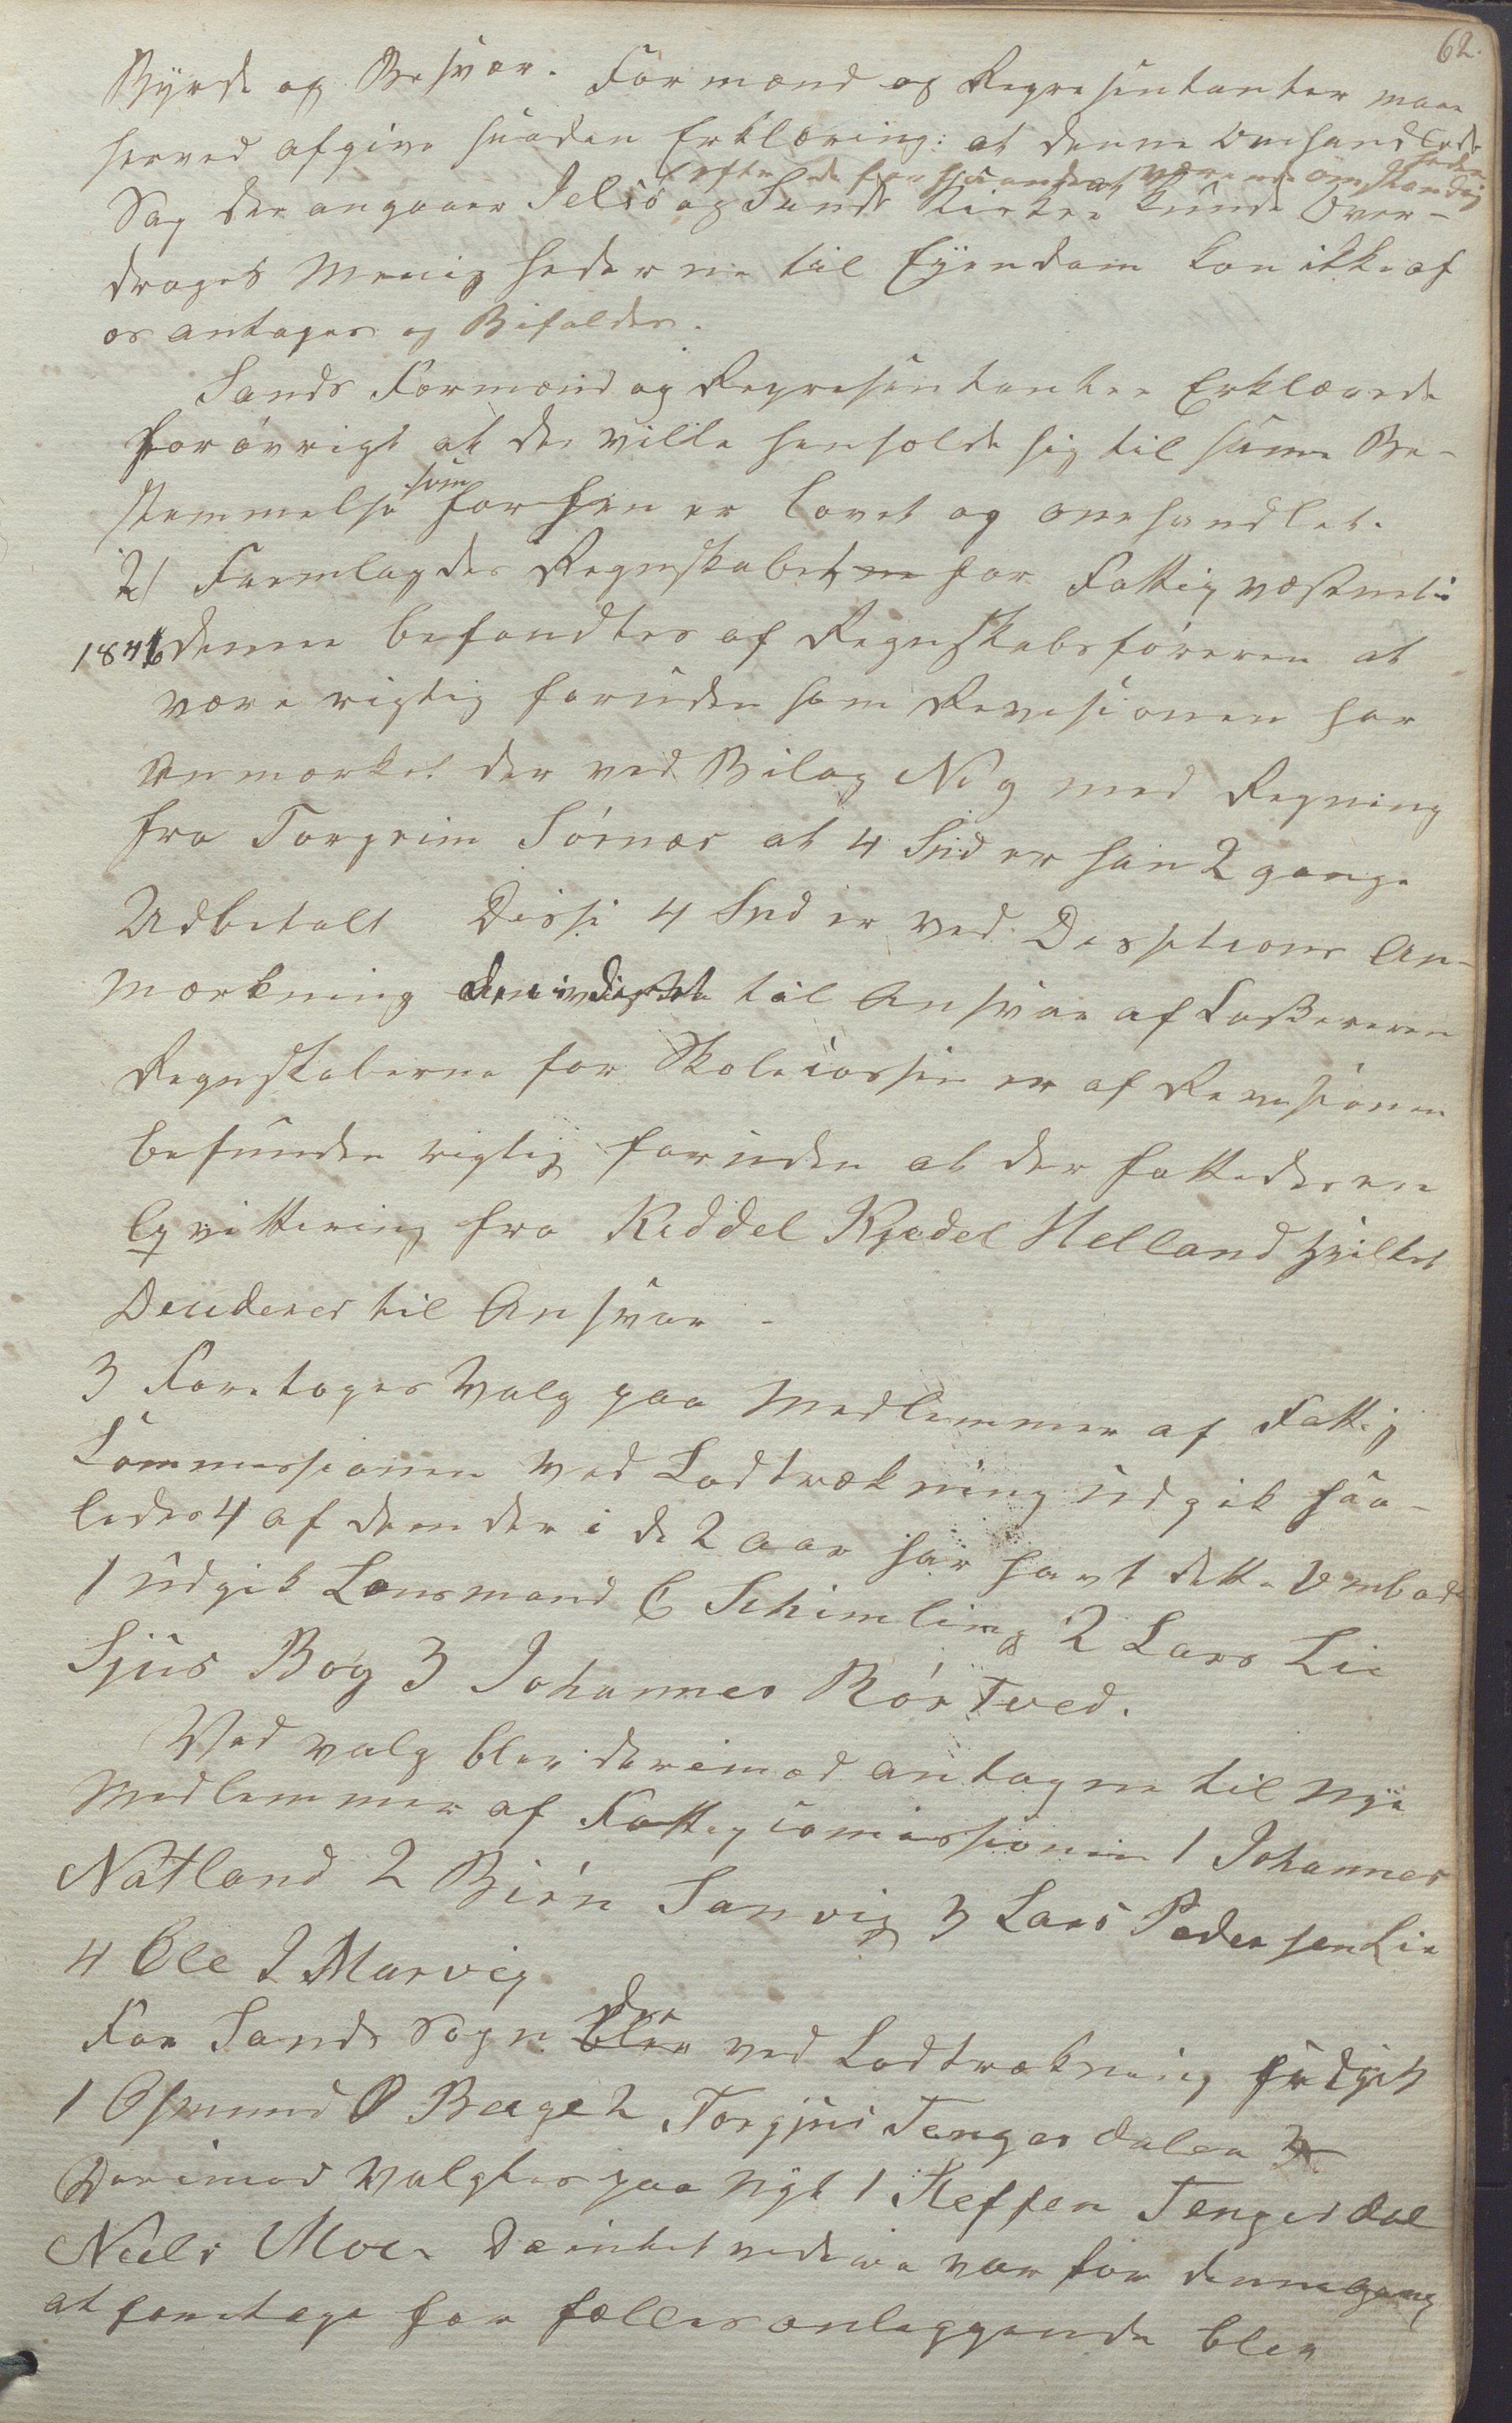 62.
Byrde og Besvær. Formænd og Representanter maae
herved afgive saadan Erklæring: at denne omhandlede
efter de forhaanden værende omstændig
heder
Sag der angaaer Jelsø og Sands Kirker kunde Over-
drages Menighederne til Eyendom kan ikke af
os antages og Bifaldes.
Sands Formænd og Representanter Erklærede
forøvrigt at de ville henholde sig til samme Be-
stemmelse som forhen er lovet og omhandlet.
2/ Fremlagdes Regnskabet for Fattigvæsenet i
1846 denne befandtes af Regnskabsføreren at
være rigtig foruden som Revisionen har
Anmærket der ved Bilag No 9 med Regning
fra Torgrim Sørnes at 4 Spd er han 2 gange
Udbetalt Disse 4 Spd er ved Desitions An-
mærkning til Ansvar af Kassereren
Regnskaberne for Skolecassen er af Revisionen
befunden rigtig foruden at der fattedes en
Qvittering fra Keddel Kjedel Helland hvilket
Deuderes til Ansvar -
3 Foretoges Valg paa Medlemmer af Fattig
Commissionen ved Lodtrækning udgik saa-
ledes 4 af dem der i de 2 aar har havt dette Embede
1 udgik Lensmand C Schimling 2 Lars Lie
Sjus Bog 3 Johannes Rørtved.
Ved valg blev derimod antagne til nye
Medlemmer af Fattigcomissionen 1 Johannes
Natland 2 Biørn Sanvig 3 Lars Pedersen Lie
4 Ole J Marvig
For Sands Sogn der ved Lodtrækning fradgik
1 Osmund O Berge 2 Torgius Tengesdalen
Derimod Valgtes paa nyt 1 Steffen Tengesdal
Neels Moe. Da intet videre var for dennegang
at foretage for fælles anleggende blev